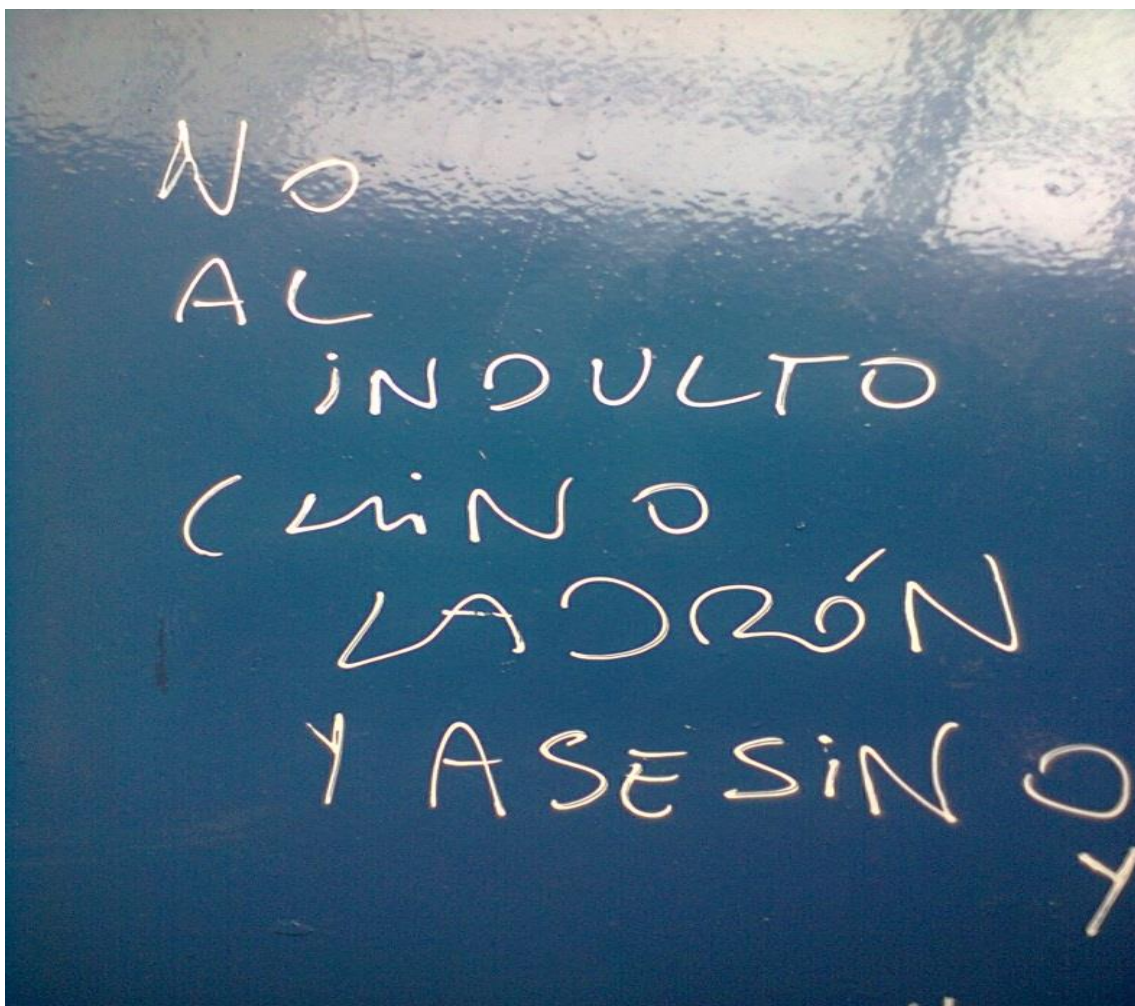 NO
AL
iNDULTO
CHiNO
LADRÓN
Y ASESiNO
Y